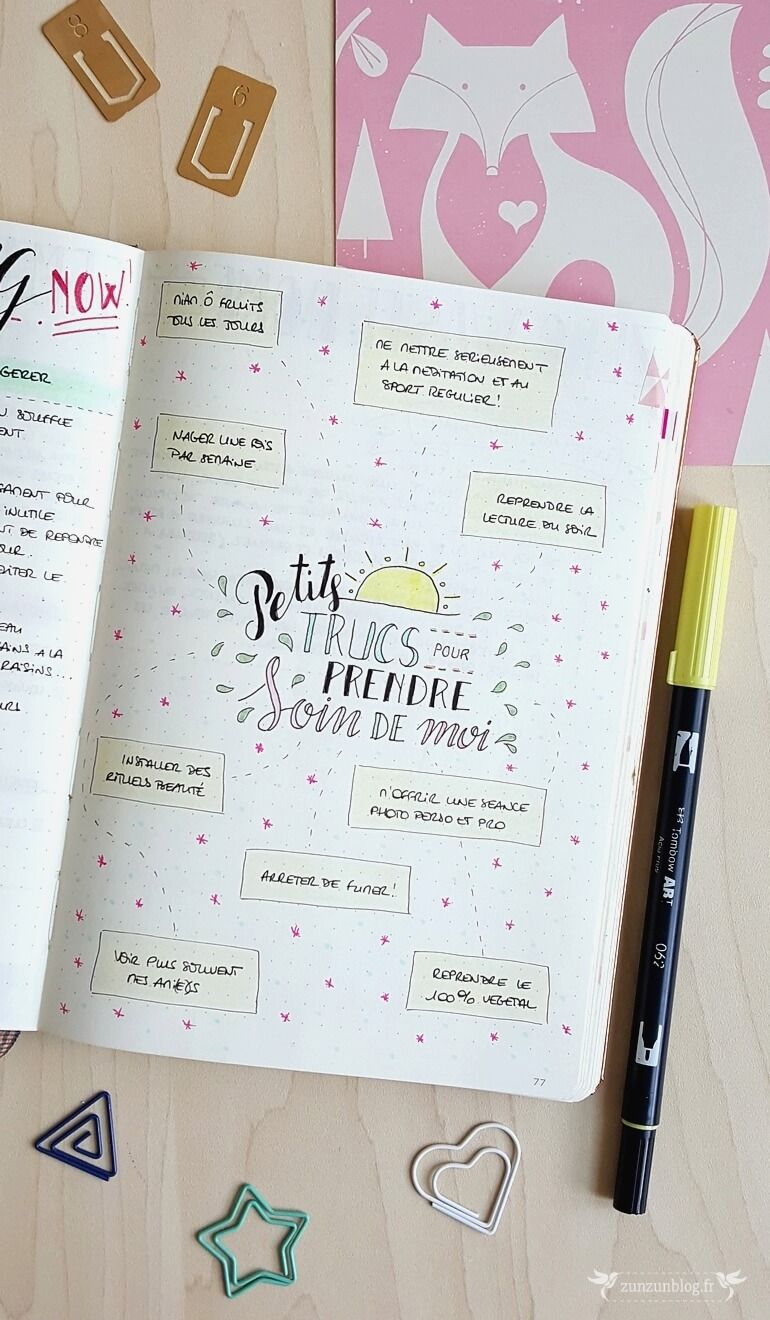 8
6
G NOW!
GERER
SOUFFLE
POUR
INUTILE
DE
LE
A LA
RAISINS...
MIAM Ô FRUITS
TOUS LES JOURS
ME METTRE SERIEUSEMENT
A LA MEDITATION ET AU
SPORT REGULIER!
NAGER UNE FOIS
PAR SEMAINE
REPRENDRE LA
LECTURE DU SOIR
Petits
TRUCS POUR
PRENDRE
Soin DE moi
INSTALLER DES
RITUELS BEAUTÉ
M'OFFRIR UNE SEANCE
PHOTO PERSO ET PRO
ARRETER DE FUMER!
VOIR PLUS SOUVENT
MES AMI(E)S
REPRENDRE LE
100% VEGETAL
77
Tombow ART
062
zunzunblog.fr